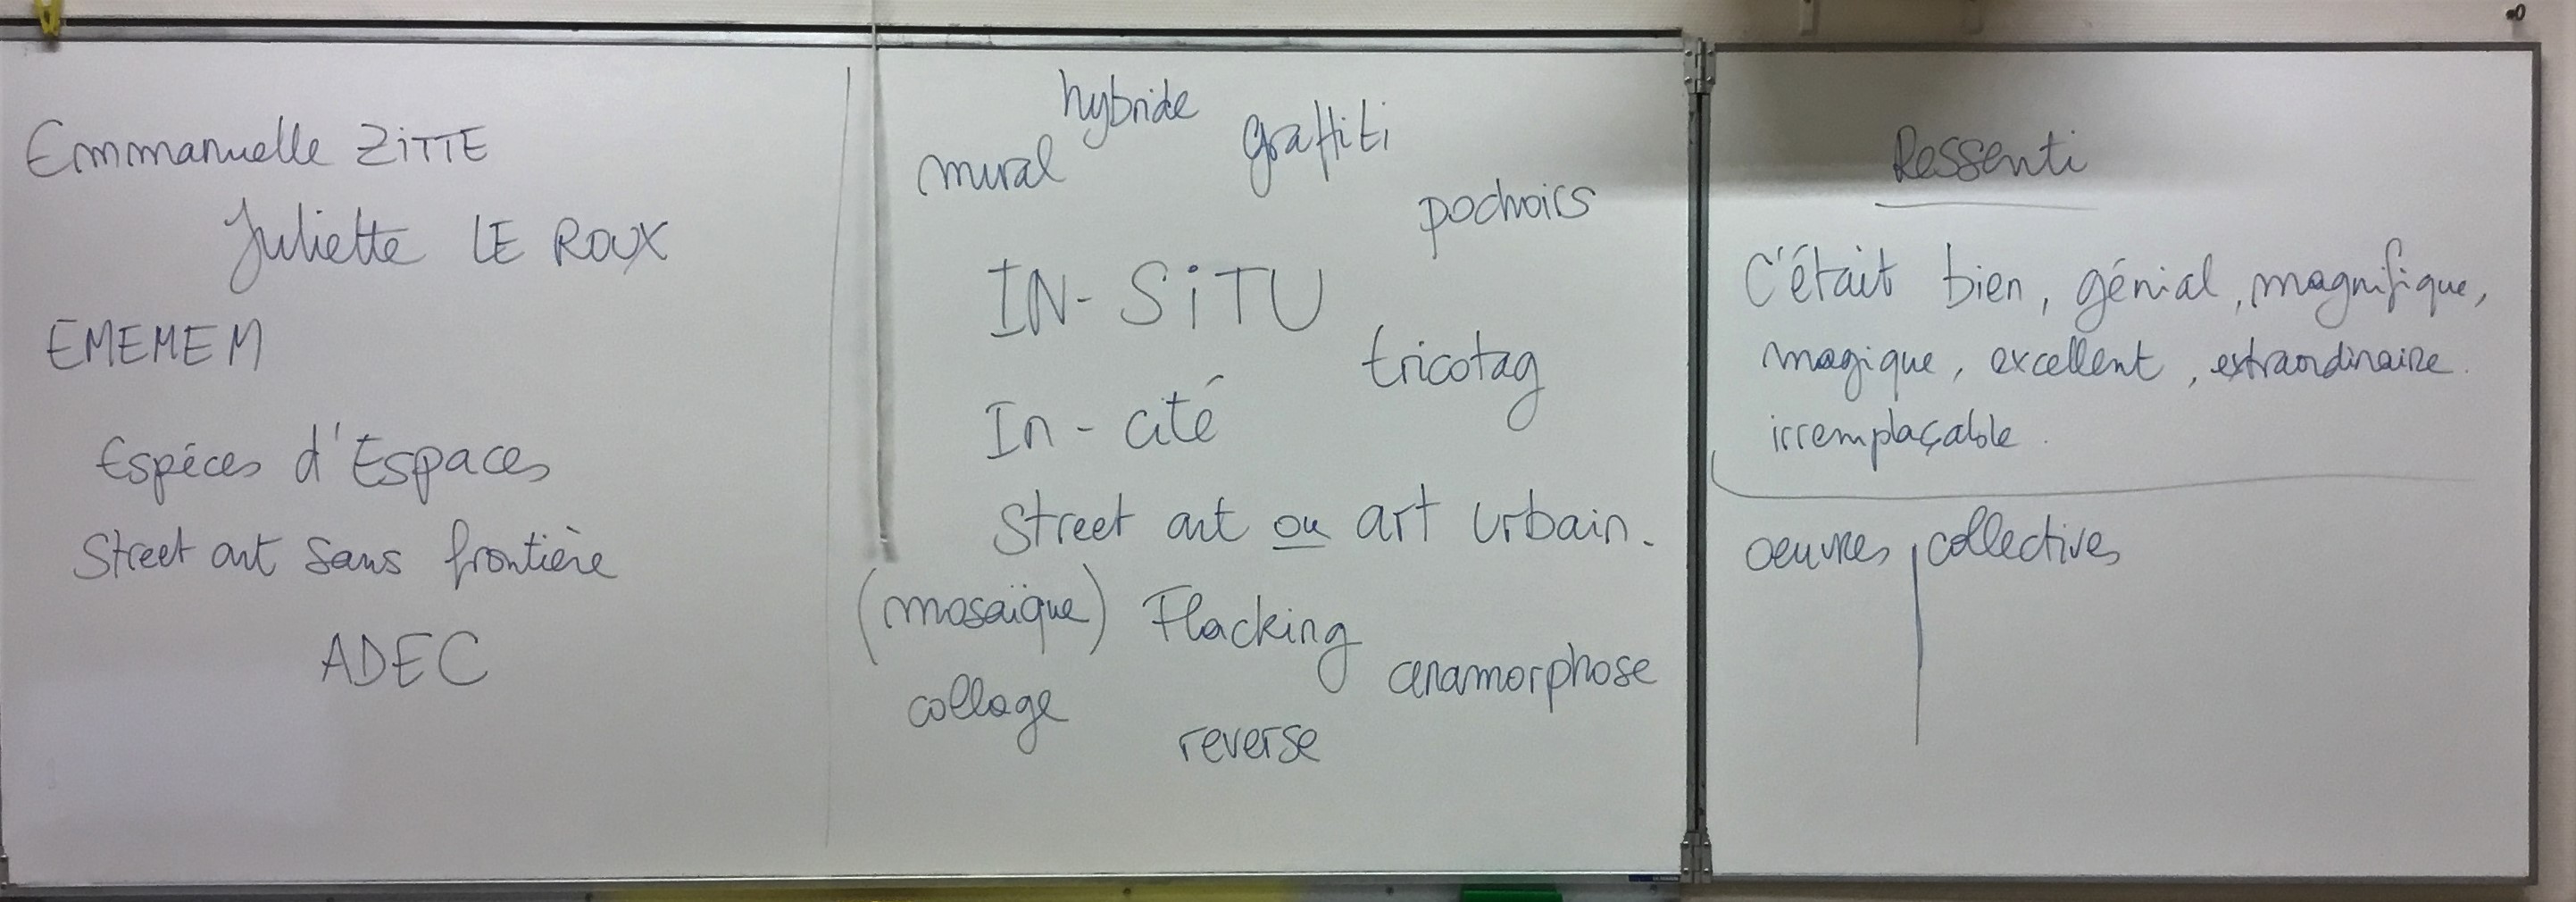 Emmanuelle ZiTTE
Juliette LE ROUX
EMEMEM
Espèces d'Espaces
Street art sans frontière
ADEC
hybride
graffiti
mural
pochoirs
IN-SiTU
tricotag
In-cité
Street art ou art urbain.
(mosaïque) Flacking
anamorphose
collage
reverse
Ressenti
C'était bien, génial, magnifique,
magique, excellent, extraordinaire.
irremplaçable.
oeuvres collectives